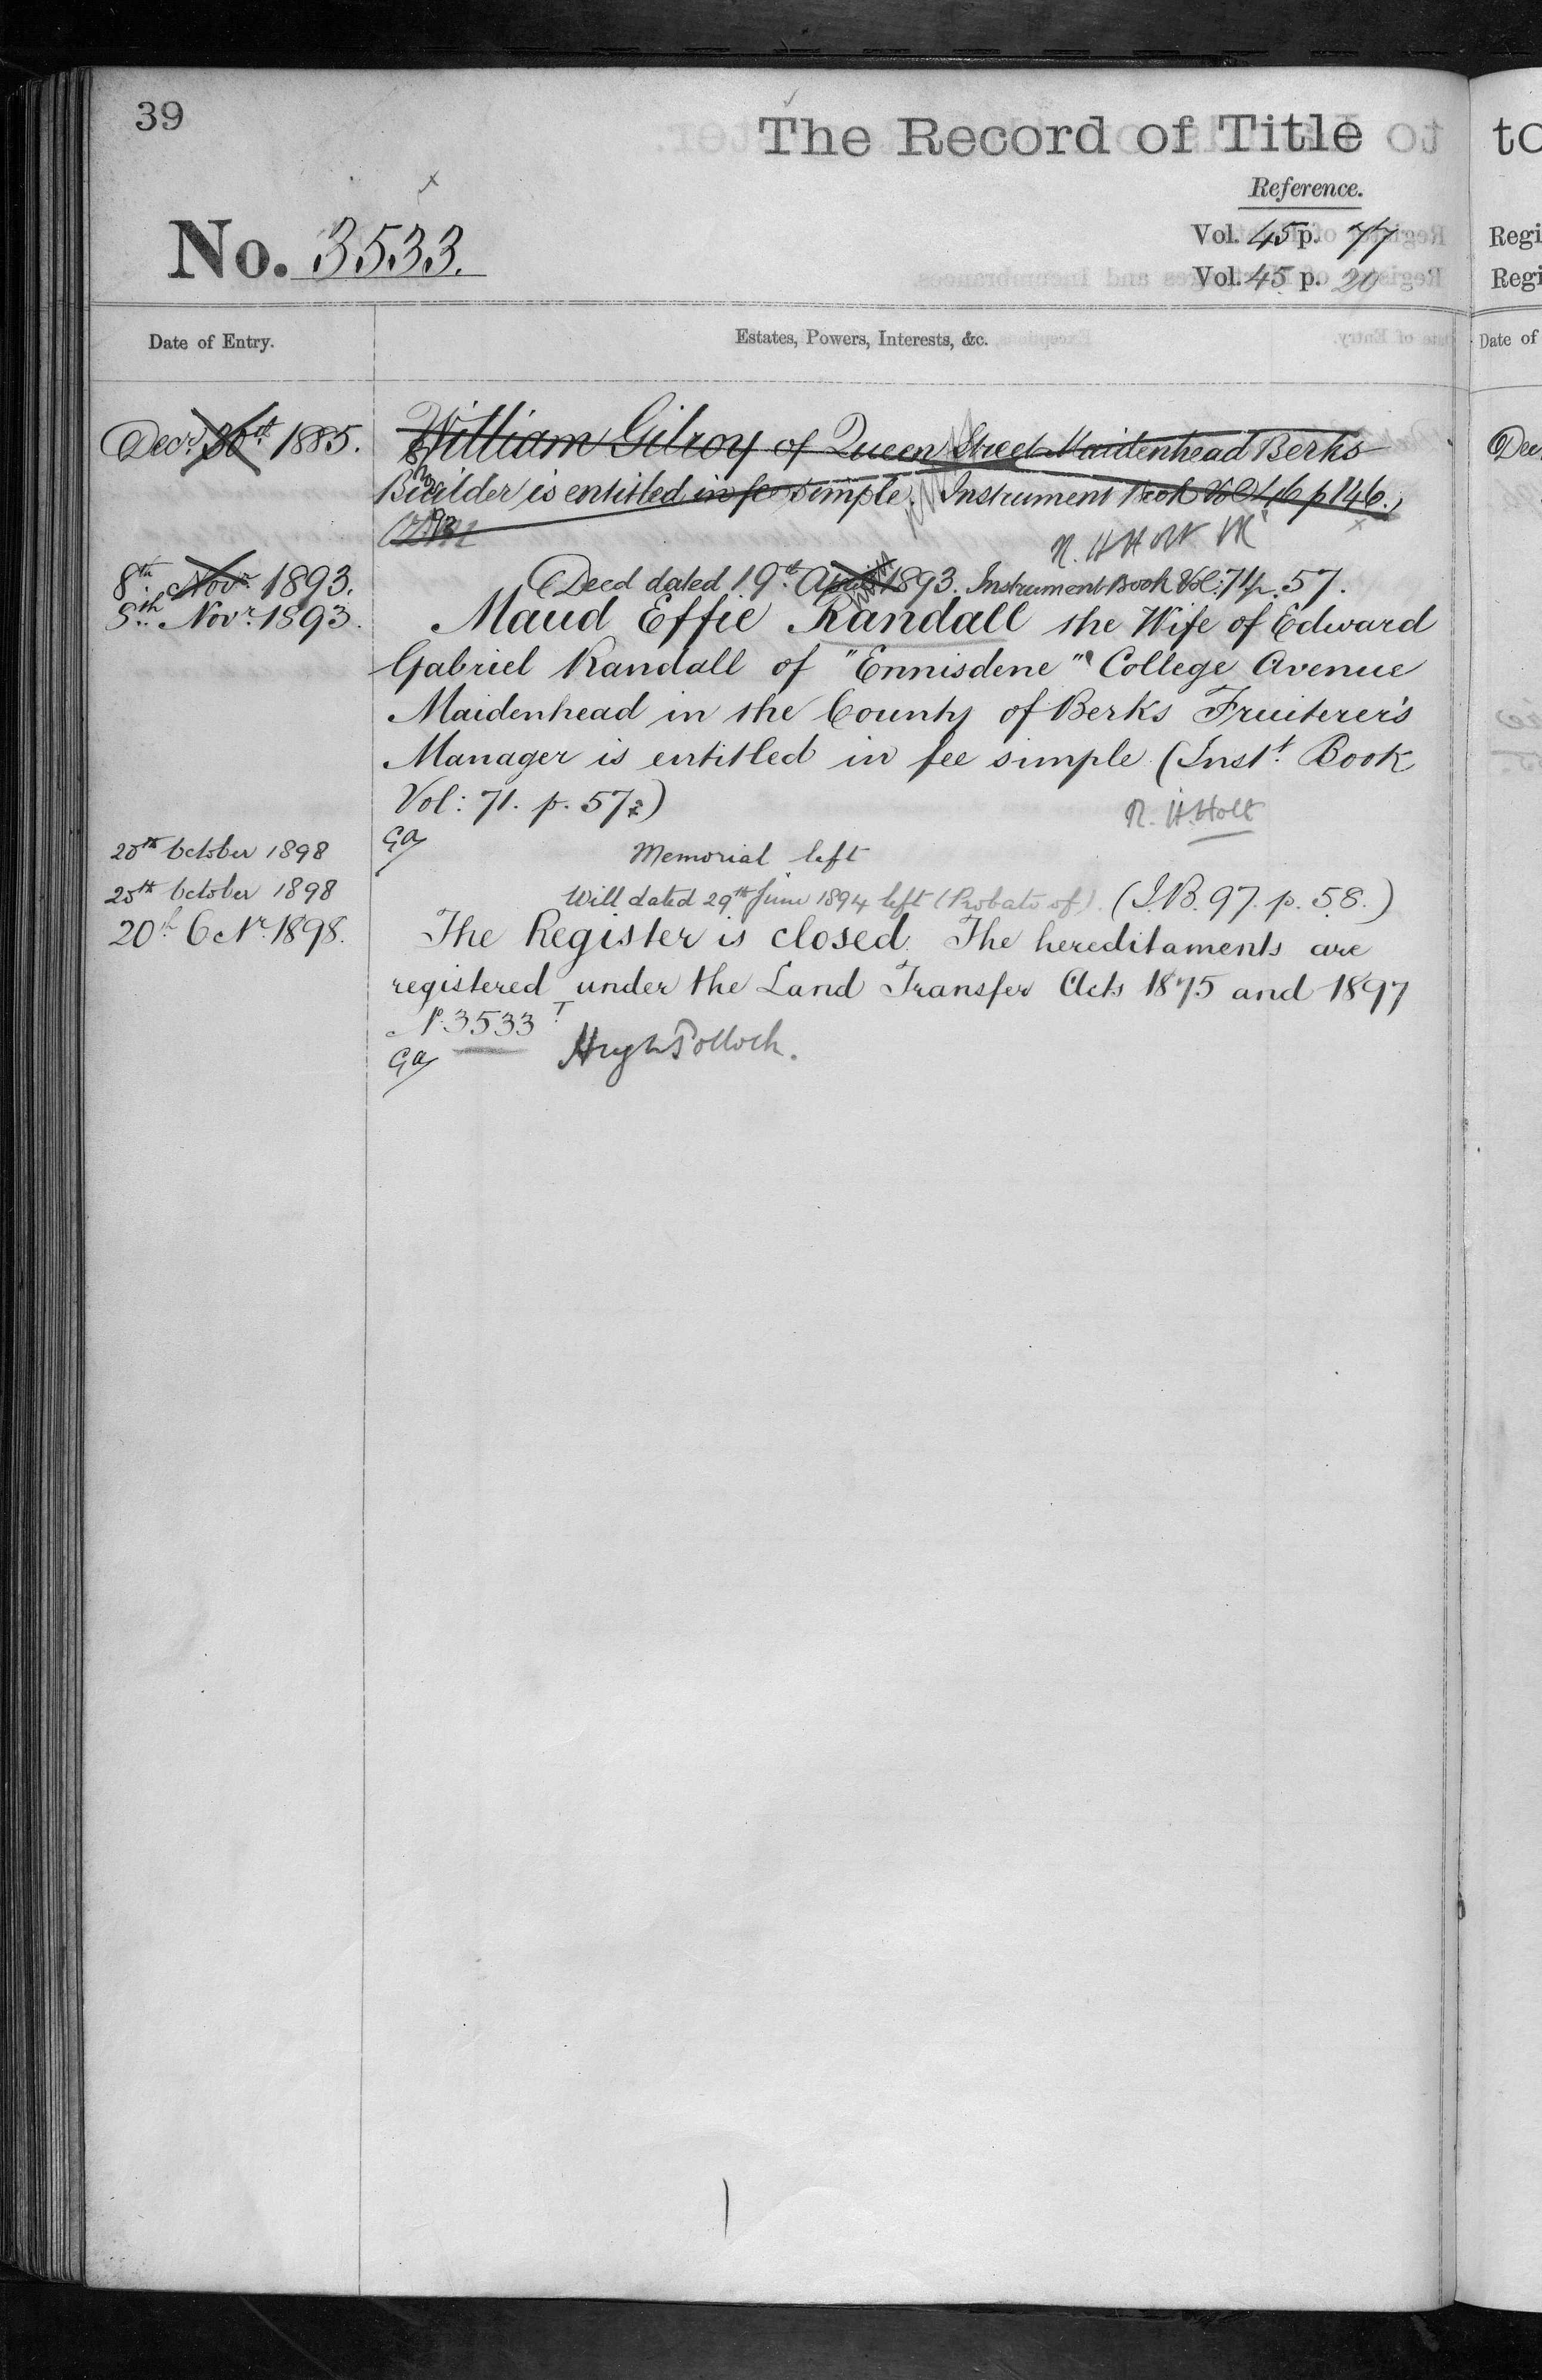 39
The Record of Title
Reference.
No. 3533.
Vol. 45 p. 77
Vol. 45 p. 20
Date of Entry.
Estates, Powers, Interests, &c.
Decr. 30th 1885.
William Gilroy of Queen Street Maidenhead Berks
Builder is entitled in fee simple. Instrument Book Vol 46 p 146.
N. H Holt
8th Novr 1893.
Deed dated 19th April 1893. Instrument Book Vol: 71 p. 57.
8th Novr 1893.
Maud Effie Randall the Wife of Edward
Gabriel Randall of "Ennisdene" College Avenue
Maidenhead in the County of Berks Fruiterer's
Manager is entitled in fee simple (Instt. Book
Vol: 71. p. 57)
N. H. Holt
Ga
20th October 1898
Memorial left
20th October 1898
Will dated 29th June 1894 left (Probate of). (I.B. 97. p. 58.)
20th Octr. 1898.
The Register is closed. The hereditaments are
registered under the Land Transfer Acts 1875 and 1897
No. 3533 T
Ga
Hugh Pollock.
to
Regi
Regi
Date of
Dec